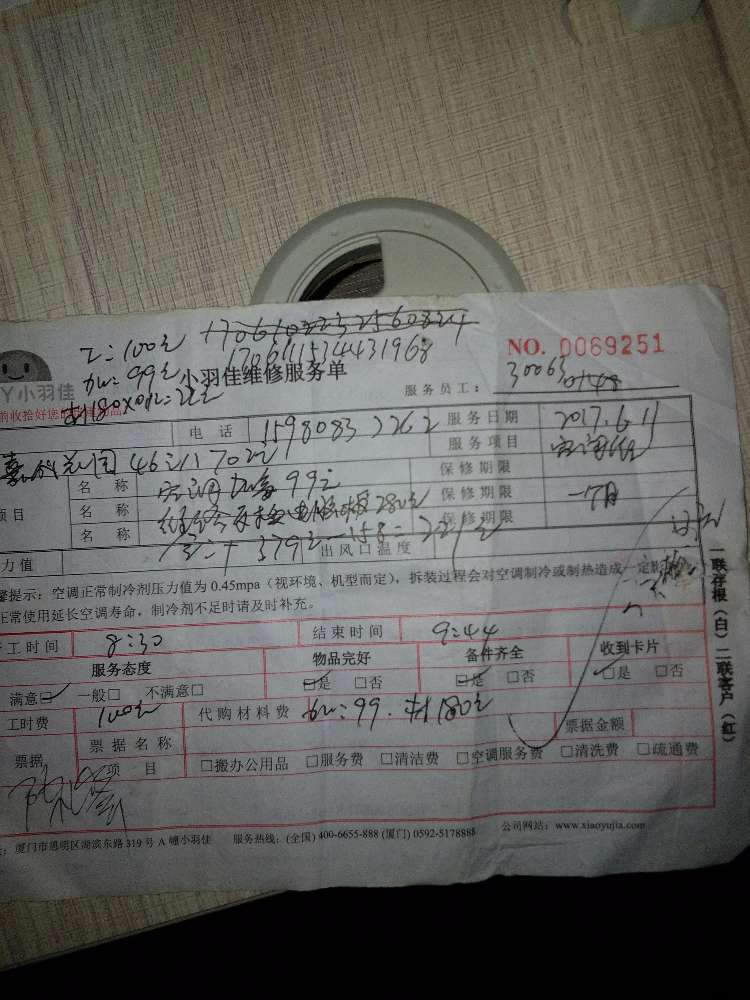 工:100元 170610223 2560824
加:99元 17061115344 31968
NO. 0069251
Y小羽佳 小羽佳维修服务单
服务员工: 30063
前收拾好您的
电 话 15980832262 服务日期 2017.6.11
46 702 服务项目 空调
名 称 空调加氟99元 保修期限
项目 名 称 280元 保修期限 一个月
名 称 保修期限
379元-158=221元
力值 出风口温度
馨提示:空调正常制冷剂压力值为 0.45mpa(视环境、机型而定),拆装过程会对空调制冷或制热造成一定影响
正常使用延长空调寿命,制冷剂不足时请及时补充。
工时间 8:30 结束时间 9:44
服务态度 物品完好 备件齐全 收到卡片
满意□ 一般□ 不满意□ □是 □否 □是 □否 □是 □否
工时费 100元 代购材料费 加:99. 材180元
票据 票据名称 票据金额
项 目 □搬办公用品 □服务费 □清洁费 □空调服务费 □清洗费 □疏通费
:厦门市思明区湖滨东路 319 号 A 幢小羽佳 服务热线:(全国) 400-6655-888 (厦门) 0592-5178888 公司网站:www.xiaoyujia.com
一联存根(白)二联客户(红)